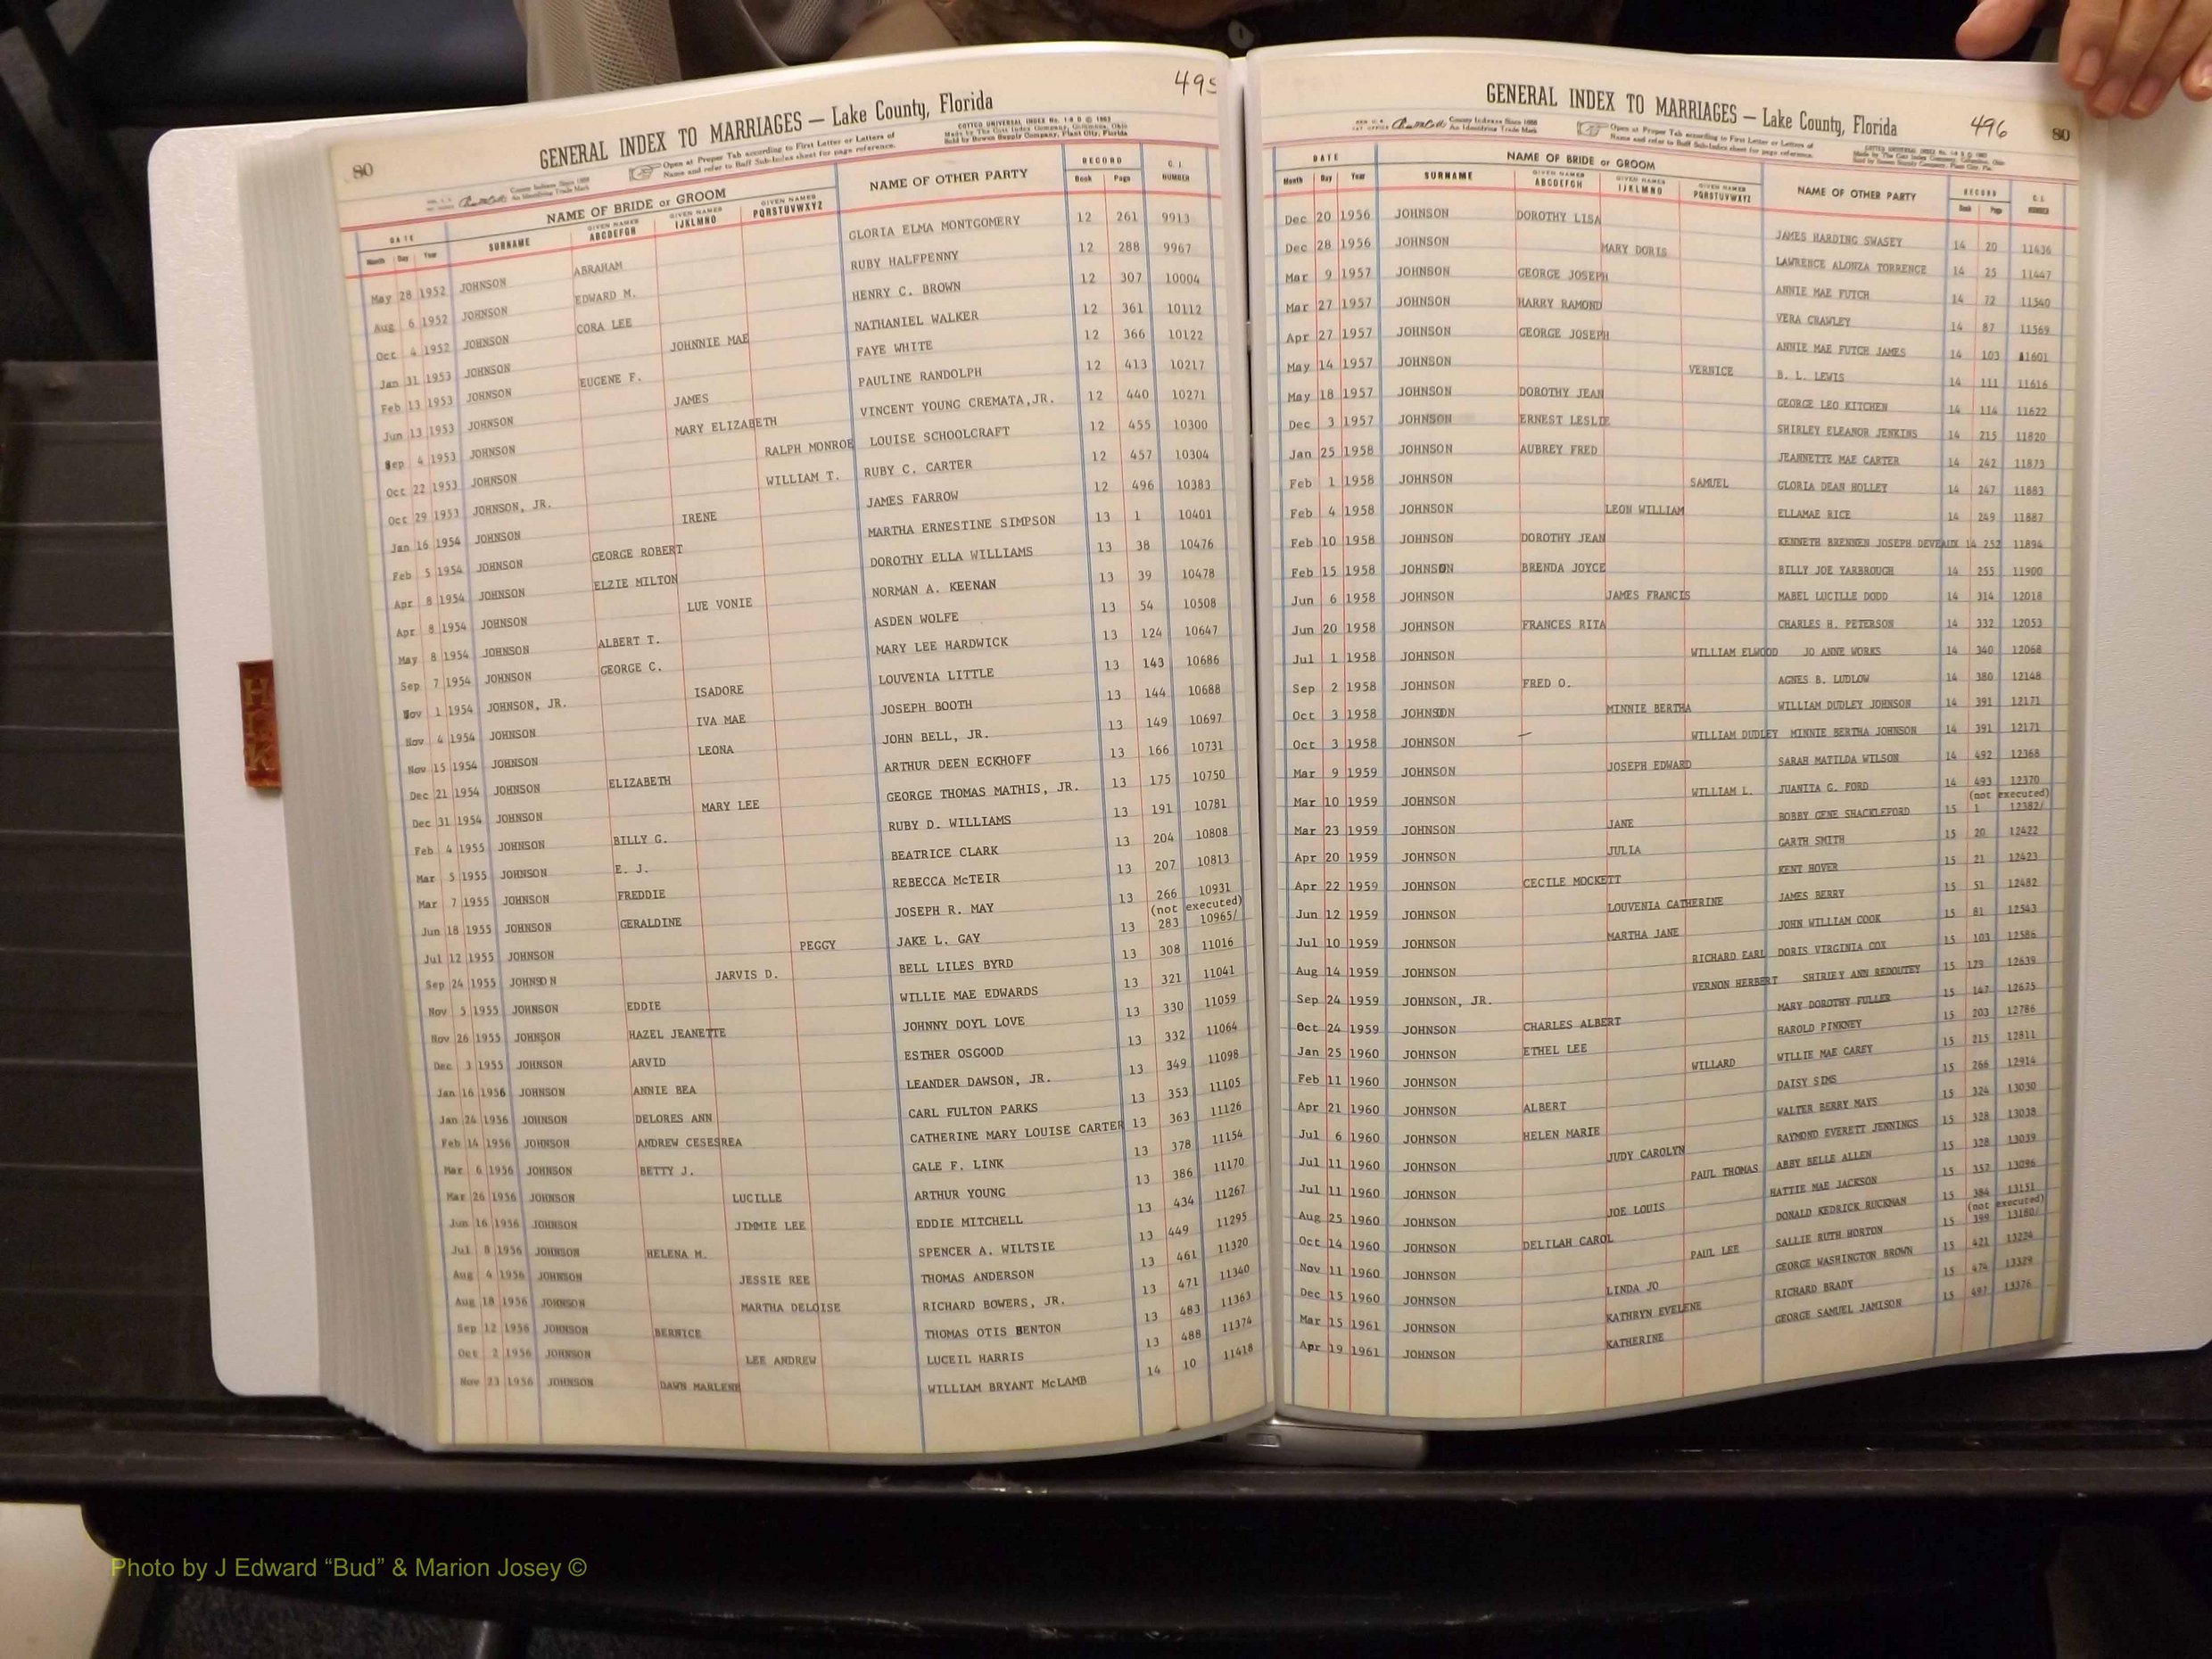 80
495
GENERAL INDEX TO MARRIAGES — Lake County, Florida
COTTCO UNIVERSAL INDEX
Made by The Cott Index Company, Columbus, Ohio
Sold by Bowen Supply Company, Plant City, Florida
County Indexes Since 1888
An Identifying Trade Mark
Open at Proper Tab according to First Letter or Letters of
Name and refer to Buff Sub-Index sheet for page reference.
DATE NAME OF BRIDE or GROOM NAME OF OTHER PARTY RECORD C. I. NUMBER
Month Day Year SURNAME GIVEN NAMES ABCDEFGH GIVEN NAMES IJKLMNO GIVEN NAMES PQRSTUVWXYZ Book Page
May 28 1952 JOHNSON ABRAHAM GLORIA ELMA MONTGOMERY 12 261 9913
Aug 6 1952 JOHNSON EDWARD M. RUBY HALFPENNY 12 288 9967
Oct 4 1952 JOHNSON CORA LEE HENRY C. BROWN 12 307 10004
Jan 31 1953 JOHNSON JOHNNIE MAE NATHANIEL WALKER 12 361 10112
Feb 13 1953 JOHNSON EUGENE F. FAYE WHITE 12 366 10122
Jun 13 1953 JOHNSON JAMES PAULINE RANDOLPH 12 413 10217
Sep 4 1953 JOHNSON MARY ELIZABETH VINCENT YOUNG CREMATA,JR. 12 440 10271
Oct 22 1953 JOHNSON RALPH MONROE LOUISE SCHOOLCRAFT 12 455 10300
Oct 29 1953 JOHNSON, JR. WILLIAM T. RUBY C. CARTER 12 457 10304
Jan 16 1954 JOHNSON IRENE JAMES FARROW 12 496 10383
Feb 5 1954 JOHNSON GEORGE ROBERT MARTHA ERNESTINE SIMPSON 13 1 10401
Apr 8 1954 JOHNSON ELZIE MILTON DOROTHY ELLA WILLIAMS 13 38 10476
Apr 8 1954 JOHNSON LUE VONIE NORMAN A. KEENAN 13 39 10478
May 8 1954 JOHNSON ALBERT T. ASDEN WOLFE 13 54 10508
Sep 7 1954 JOHNSON GEORGE C. MARY LEE HARDWICK 13 124 10647
Nov 1 1954 JOHNSON, JR. ISADORE LOUVENIA LITTLE 13 143 10686
Nov 4 1954 JOHNSON IVA MAE JOSEPH BOOTH 13 144 10688
Nov 15 1954 JOHNSON LEONA JOHN BELL, JR. 13 149 10697
Dec 21 1954 JOHNSON ELIZABETH ARTHUR DEEN ECKHOFF 13 166 10731
Dec 31 1954 JOHNSON MARY LEE GEORGE THOMAS MATHIS, JR. 13 175 10750
Feb 4 1955 JOHNSON BILLY G. RUBY D. WILLIAMS 13 191 10781
Mar 5 1955 JOHNSON E. J. BEATRICE CLARK 13 204 10808
Mar 7 1955 JOHNSON FREDDIE REBECCA McTEIR 13 207 10813
Jun 18 1955 JOHNSON GERALDINE JOSEPH R. MAY 13 266 10931
(not executed)
Jul 12 1955 JOHNSON PEGGY JAKE L. GAY 13 283 10965/
Sep 24 1955 JOHNSON JARVIS D. BELL LILES BYRD 13 308 11016
Nov 5 1955 JOHNSON EDDIE WILLIE MAE EDWARDS 13 321 11041
Nov 26 1955 JOHNSON HAZEL JEANETTE JOHNNY DOYL LOVE 13 330 11059
Dec 3 1955 JOHNSON ARVID ESTHER OSGOOD 13 332 11064
Jan 16 1956 JOHNSON ANNIE BEA LEANDER DAWSON, JR. 13 349 11098
Jan 24 1956 JOHNSON DELORES ANN CARL FULTON PARKS 13 353 11105
Feb 14 1956 JOHNSON ANDREW CESESREA CATHERINE MARY LOUISE CARTER 13 363 11126
Mar 6 1956 JOHNSON BETTY J. GALE F. LINK 13 378 11154
Mar 26 1956 JOHNSON LUCILLE ARTHUR YOUNG 13 386 11170
Jun 16 1956 JOHNSON JIMMIE LEE EDDIE MITCHELL 13 434 11267
Jul 8 1956 JOHNSON HELENA M. SPENCER A. WILTSIE 13 449 11295
Aug 4 1956 JOHNSON JESSIE REE THOMAS ANDERSON 13 461 11320
Aug 18 1956 JOHNSON MARTHA DELOISE RICHARD BOWERS, JR. 13 471 11340
Sep 12 1956 JOHNSON BERNICE THOMAS OTIS BENTON 13 483 11363
Oct 2 1956 JOHNSON LEE ANDREW LUCEIL HARRIS 13 488 11374
Nov 23 1956 JOHNSON DAWN MARLENE WILLIAM BRYANT McLAMB 14 10 11418
HIJK
GENERAL INDEX TO MARRIAGES — Lake County, Florida
496
80
County Indexes Since 1888
An Identifying Trade Mark
Open at Proper Tab according to First Letter or Letters of
Name and refer to Buff Sub-Index sheet for page reference.
DATE NAME OF BRIDE or GROOM NAME OF OTHER PARTY RECORD C. I. NUMBER
Month Day Year SURNAME GIVEN NAMES ABCDEFGH GIVEN NAMES IJKLMNO GIVEN NAMES PQRSTUVWXYZ Book Page
Dec 20 1956 JOHNSON DOROTHY LISA JAMES HARDING SWASEY 14 20 11436
Dec 28 1956 JOHNSON MARY DORIS LAWRENCE ALONZA TORRENCE 14 25 11447
Mar 9 1957 JOHNSON GEORGE JOSEPH ANNIE MAE FUTCH 14 72 11540
Mar 27 1957 JOHNSON HARRY RAMOND VERA CRAWLEY 14 87 11569
Apr 27 1957 JOHNSON GEORGE JOSEPH ANNIE MAE FUTCH JAMES 14 103 11601
May 14 1957 JOHNSON VERNICE B. L. LEWIS 14 111 11616
May 18 1957 JOHNSON DOROTHY JEAN GEORGE LEO KITCHEN 14 114 11622
Dec 3 1957 JOHNSON ERNEST LESLIE SHIRLEY ELEANOR JENKINS 14 215 11820
Jan 25 1958 JOHNSON AUBREY FRED JEANNETTE MAE CARTER 14 242 11873
Feb 1 1958 JOHNSON SAMUEL GLORIA DEAN HOLLEY 14 247 11883
Feb 4 1958 JOHNSON LEON WILLIAM ELLAMAE RICE 14 249 11887
Feb 10 1958 JOHNSON DOROTHY JEAN KENNETH BRENNEN JOSEPH DEVEAUX 14 252 11894
Feb 15 1958 JOHNSON BRENDA JOYCE BILLY JOE YARBROUGH 14 255 11900
Jun 6 1958 JOHNSON JAMES FRANCIS MABEL LUCILLE DODD 14 314 12018
Jun 20 1958 JOHNSON FRANCES RITA CHARLES H. PETERSON 14 332 12053
Jul 1 1958 JOHNSON WILLIAM ELWOOD JO ANNE WORKS 14 340 12068
Sep 2 1958 JOHNSON FRED O. AGNES B. LUDLOW 14 380 12148
Oct 3 1958 JOHNSON MINNIE BERTHA WILLIAM DUDLEY JOHNSON 14 391 12171
Oct 3 1958 JOHNSON WILLIAM DUDLEY MINNIE BERTHA JOHNSON 14 391 12171
Mar 9 1959 JOHNSON JOSEPH EDWARD SARAH MATILDA WILSON 14 492 12368
Mar 10 1959 JOHNSON WILLIAM L. JUANITA G. FORD 14 493 12370
(not executed)
Mar 23 1959 JOHNSON JANE BOBBY GENE SHACKLEFORD 15 1 12382/
Apr 20 1959 JOHNSON JULIA GARTH SMITH 15 20 12422
Apr 22 1959 JOHNSON CECILE MOCKETT KENT HOVER 15 21 12423
Jun 12 1959 JOHNSON LOUVENIA CATHERINE JAMES BERRY 15 51 12482
Jul 10 1959 JOHNSON MARTHA JANE JOHN WILLIAM COOK 15 81 12543
Aug 14 1959 JOHNSON RICHARD EARL DORIS VIRGINIA COX 15 103 12586
Sep 24 1959 JOHNSON, JR. VERNON HERBERT SHIRLEY ANN REDOUTEY 15 129 12639
Oct 24 1959 JOHNSON CHARLES ALBERT MARY DOROTHY FULLER 15 147 12675
Jan 25 1960 JOHNSON ETHEL LEE HAROLD PINKNEY 15 203 12786
Feb 11 1960 JOHNSON WILLARD WILLIE MAE CAREY 15 215 12811
Apr 21 1960 JOHNSON ALBERT DAISY SIMS 15 266 12914
Jul 6 1960 JOHNSON HELEN MARIE WALTER BERRY MAYS 15 324 13030
Jul 11 1960 JOHNSON JUDY CAROLYN RAYMOND EVERETT JENNINGS 15 328 13038
Jul 11 1960 JOHNSON PAUL THOMAS ABBY BELLE ALLEN 15 328 13039
Aug 25 1960 JOHNSON JOE LOUIS HATTIE MAE JACKSON 15 357 13096
Oct 14 1960 JOHNSON DELILAH CAROL DONALD KEDRICK RUCKMAN 15 384 13151
(not executed)
Nov 11 1960 JOHNSON PAUL LEE SALLIE RUTH HORTON 15 399 13180/
Dec 15 1960 JOHNSON LINDA JO GEORGE WASHINGTON BROWN 15 421 13224
Mar 15 1961 JOHNSON KATHRYN EVELENE RICHARD BRADY 15 474 13329
Apr 19 1961 JOHNSON KATHERINE GEORGE SAMUEL JAMISON 15 497 13376
Photo by J Edward “Bud” & Marion Josey ©